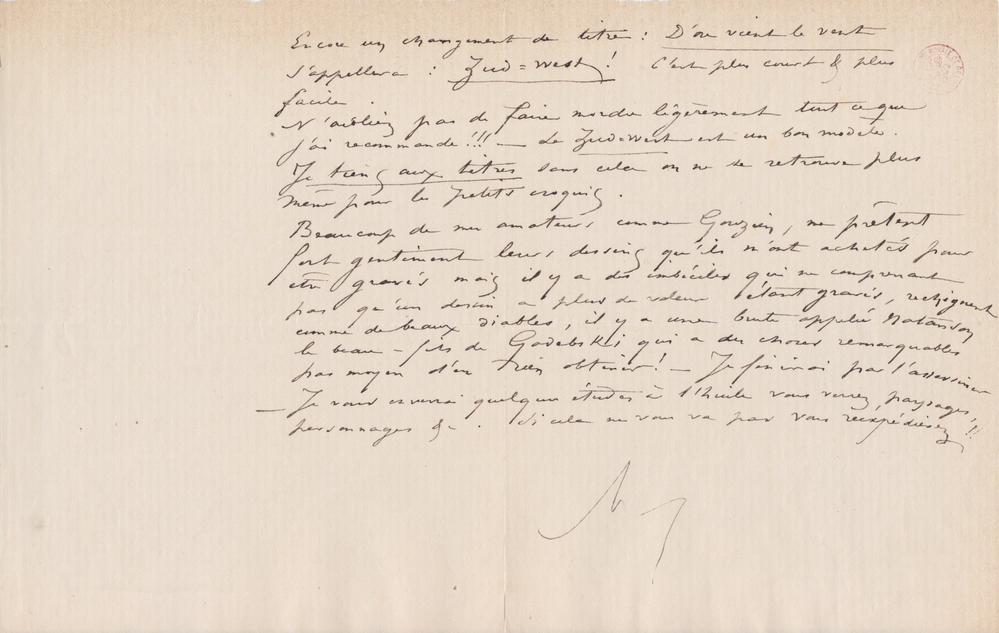 Encore un changement de titre : D'ou vient le vent
s'appellera : Zud=West ! C'est plus court & plus
facile.
N'oubliez pas de faire mordre légèrement tout ce que
j'ai recommandé !!! — Le Zud=West est un bon modèle.
Je tiens aux titres sans cela on ne se retrouve plus
même pour les petits croquis.
Beaucoup de mes amateurs comme Gouzien, me prêtent
fort gentiment leurs dessins qu'ils m'ont achetés pour
être gravés mais il y a des imbéciles qui ne comprenant
pas qu'un dessin a plus de valeur étant gravés, rechignent
comme de beaux diables, il y a une brute appelée Natanson
le beau-fils de Godebski qui a des choses remarquables
pas moyen d'en rien obtenir ! — Je finirai par l'assassiner
— Je vous enverrai quelques études à l'huile vous verrez, paysages,
personnages &c. Si cela ne vous va pas vous réexpédierez !!